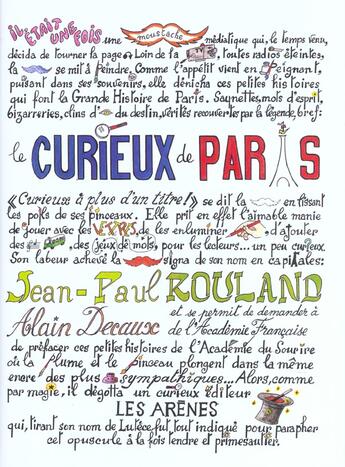 IL ÉTAIT UNE FOIS une moustache médiatique qui, le temps venu,
décida de tourner la page. Loin de la toutes radios éteintes,
la se mit à peindre. Comme l'appétit vient en peignant,
puisant dans ses souvenirs, elle dénicha ces petites histoires
qui font la Grande Histoire de Paris. Saynettes, mots d'esprit,
bizarreries, clins d' du destin, vérités recouvertes par la légende, bref:
le CURIEUX de PARIS
"Curieuse à plus d'un titre!" se dit la en lissant
les poils de ses pinceaux. Elle prit en effet l'aimable manie
de jouer avec les de les enluminer d'ajouter
des des jeux de mots, pour les lecteurs... un peu curieux.
Son labeur achevé la signa de son nom en capitales:
Jean-Paul ROULAND
et se permit de demander à
Alain Decaux de l'Académie Française
de préfacer ces petites histoires de l'Académie du Sourire
où la plume et le pinceau plongent dans la même
encre des plus sympathiques... Alors, comme
par magie, il dégotta un curieux éditeur
LES ARÈNES
qui, tirant son nom de Lutèce, fut tout indiqué pour parapher
cet opuscule à la fois tendre et primesautier.